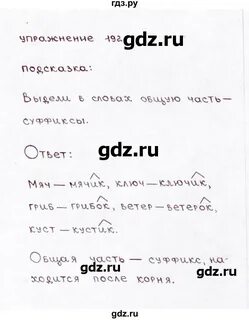 гдз.ру
упражнение 192
gdz.ru
подсказка:
gdz.ru
Выдели в словах общую часть —
суффиксы.
gdz.ru
Ответ:
gdz.ru
Мяч — мячик, ключ — ключик,
гриб — грибок, ветер — ветерок,
gdz.ru
куст — кустик.
gdz.ru
Общая часть — суффикс, на-
ходится после корня.
gdz.ru